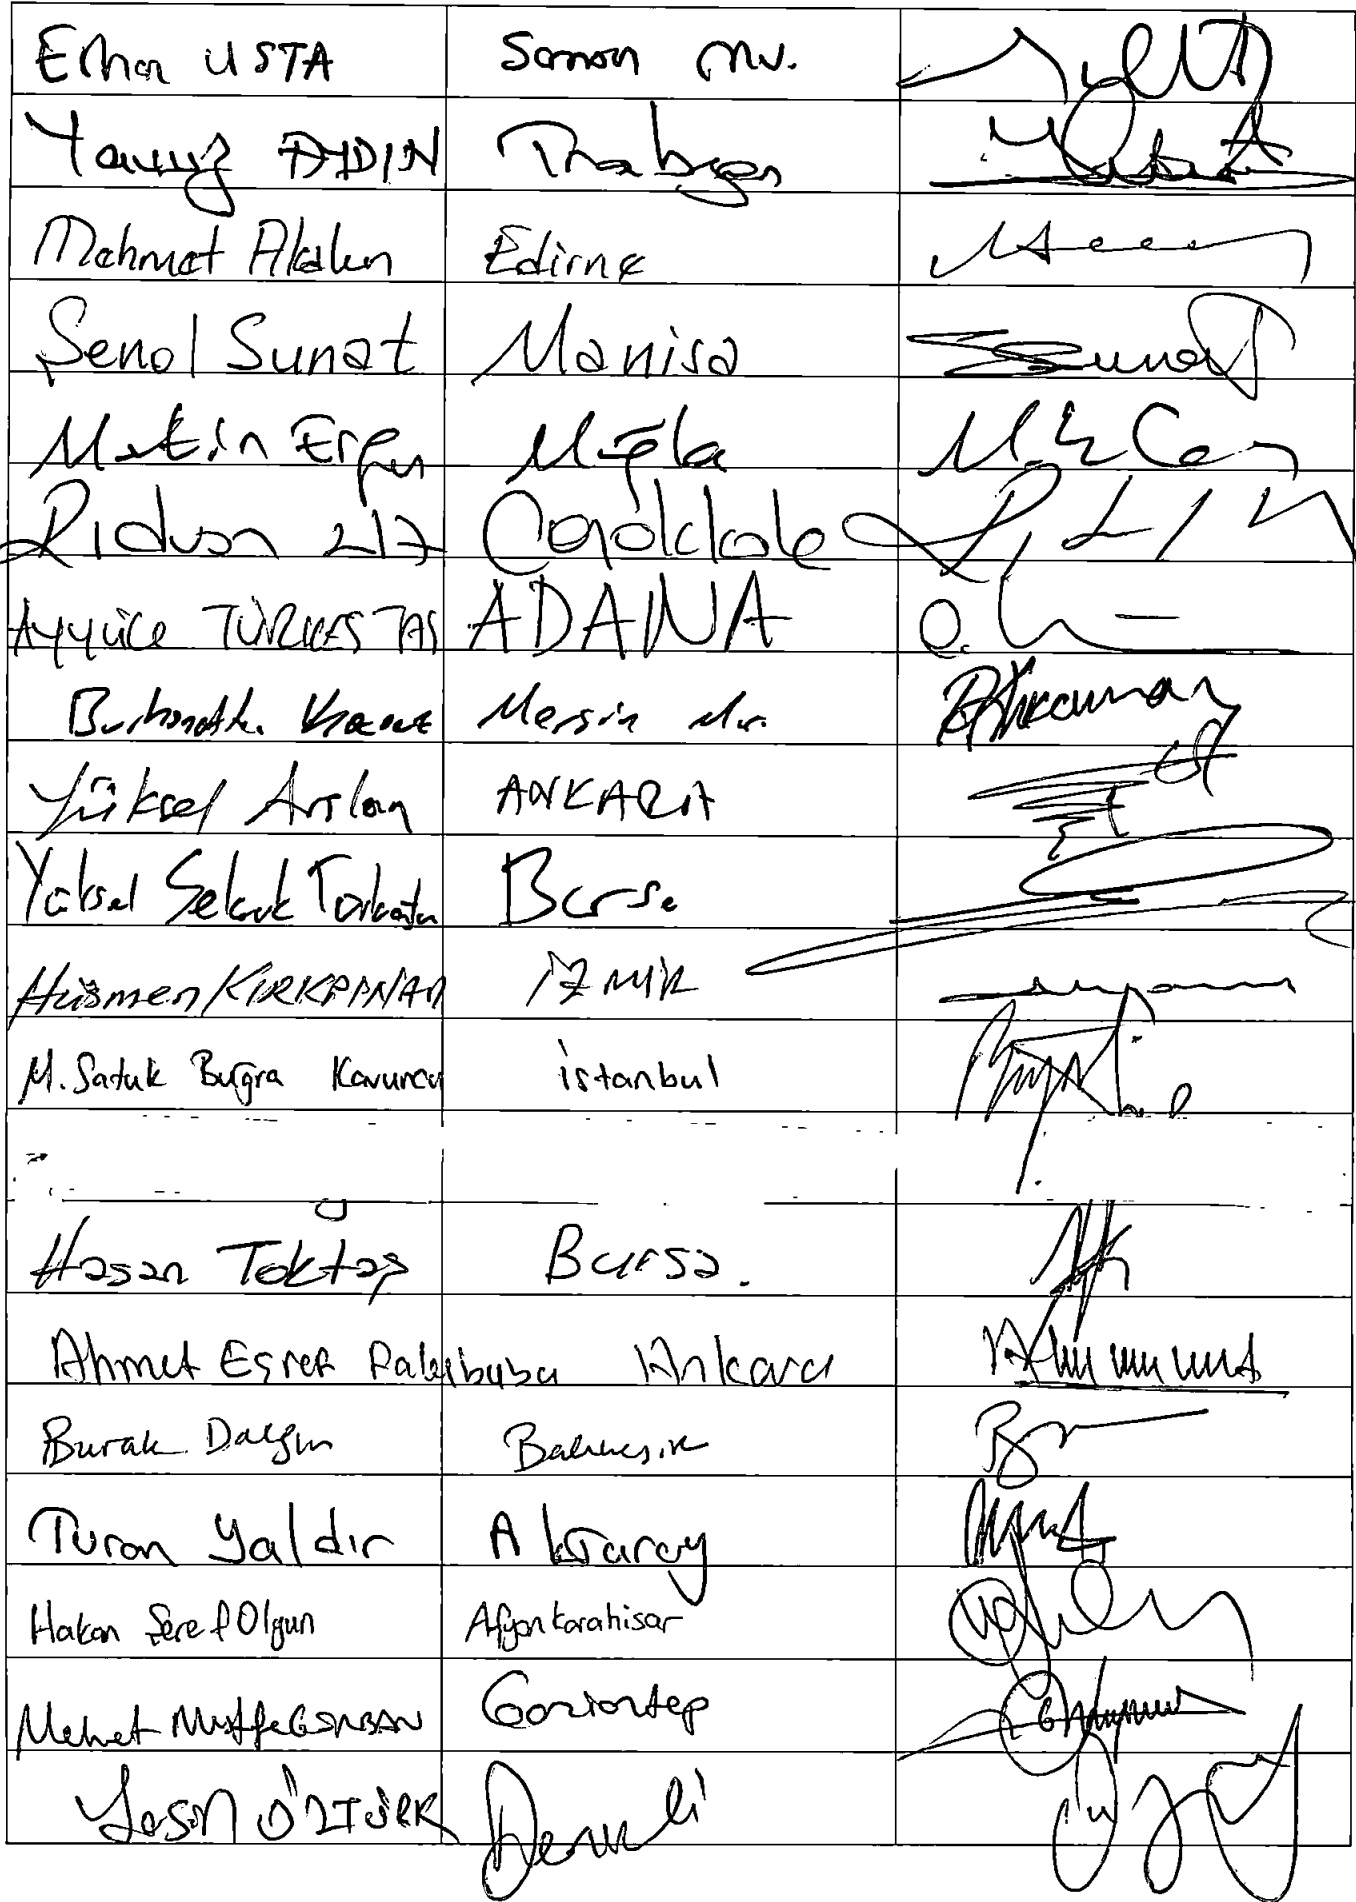 Erhan USTA Samsun Mv.
Yavuz AYDIN Trabzon
Mehmet Akalın Edirne
Şenol Sunat Manisa
Metin Ergun Muğla
Rıdvan Uz Çanakkale
Ayyüce TÜRKEŞ TAŞ ADANA
Burhanettin Kocamaz Mersin Mv.
Yüksel Arslan ANKARA
Yüksel Selçuk Türkoğlu Bursa
Hüsmen KIRKPINAR İZMİR
M. Satuk Buğra Kavuncu İstanbul
Hasan Toktaş Bursa.
Ahmet Eşref Fakıbaba Ankara
Burak Dalgın Balıkesir
Turan Yaldır Aksaray
Hakan Şeref Olgun Afyonkarahisar
Mehmet Mustafa GÜRBAN Gaziantep
Yasin ÖZTÜRK Denizli